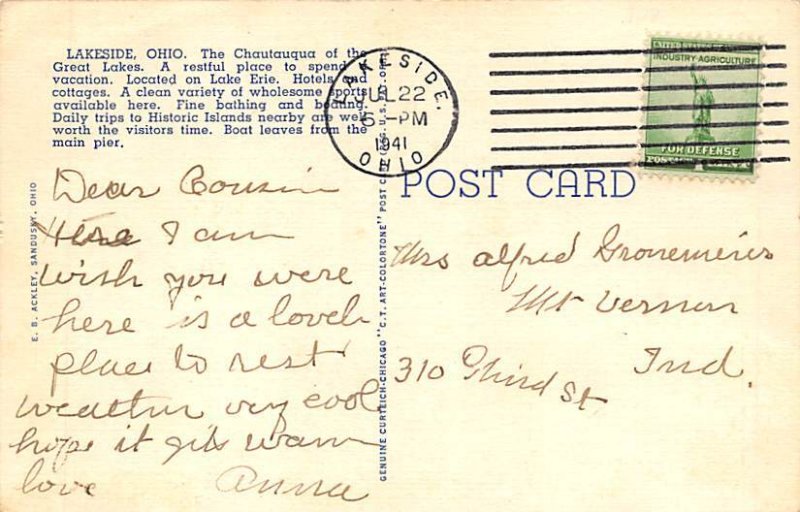 LAKESIDE, OHIO. The Chautauqua of the
Great Lakes. A restful place to spend a
vacation. Located on Lake Erie. Hotels and
cottages. A clean variety of wholesome sports
available here. Fine bathing and boating.
Daily trips to Historic Islands nearby are well
worth the visitors time. Boat leaves from the
main pier.
LAKESIDE,
JUL 22
5 - PM
1941
OHIO
UNITED STATES OF AMERICA
INDUSTRY-AGRICULTURE
FOR DEFENSE
POSTAGE
POST CARD
Dear Cousin
Here I am
wish you were
here is a lovely
place to rest
weather very cool
hope it gets warm
love Anna
Mrs Alfred Gronemeier
Mt Vernon
310 Third St
Ind.
E. B. ACKLEY, SANDUSKY, OHIO
GENUINE CURTEICH-CHICAGO "C.T. ART-COLORTONE" POST CARD (REG. U.S. PAT. OFF.)